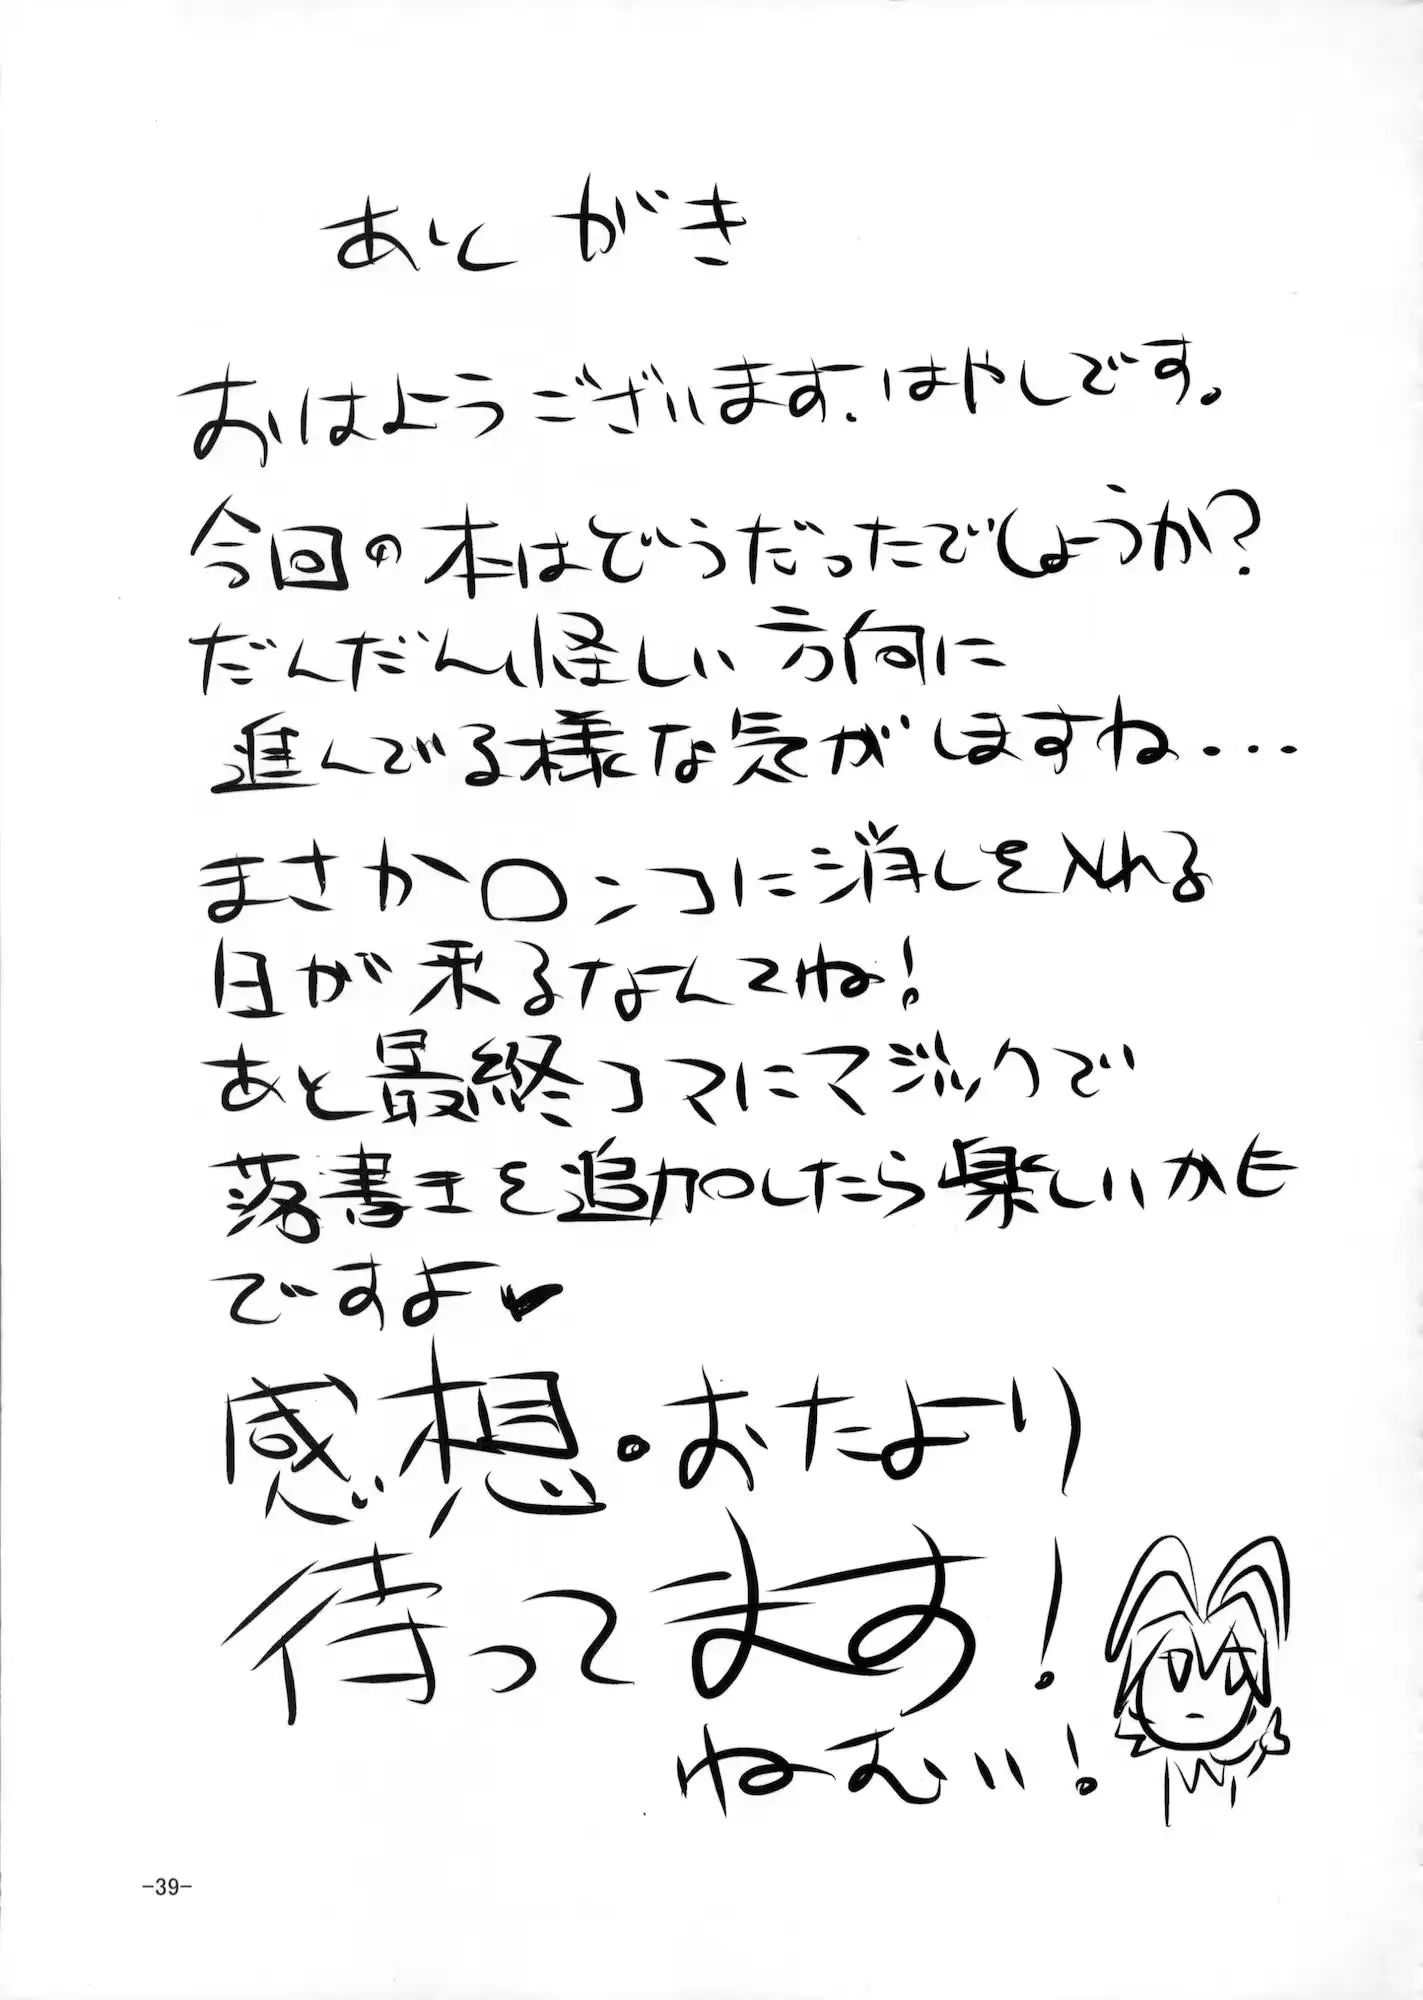 あとがき
おはようございます、はやしです。
今回の本はどうだったでしょうか?
だんだん怪しい方向に
進んでる様な気がしますね...
まさか〇ンコに消しを入れる
日が来るなんてね!
あと最終コマにマジックで
落書きを追加したら楽しいかも
ですよ♥
感想・おたより
待ってます!
ねむい!
-39-